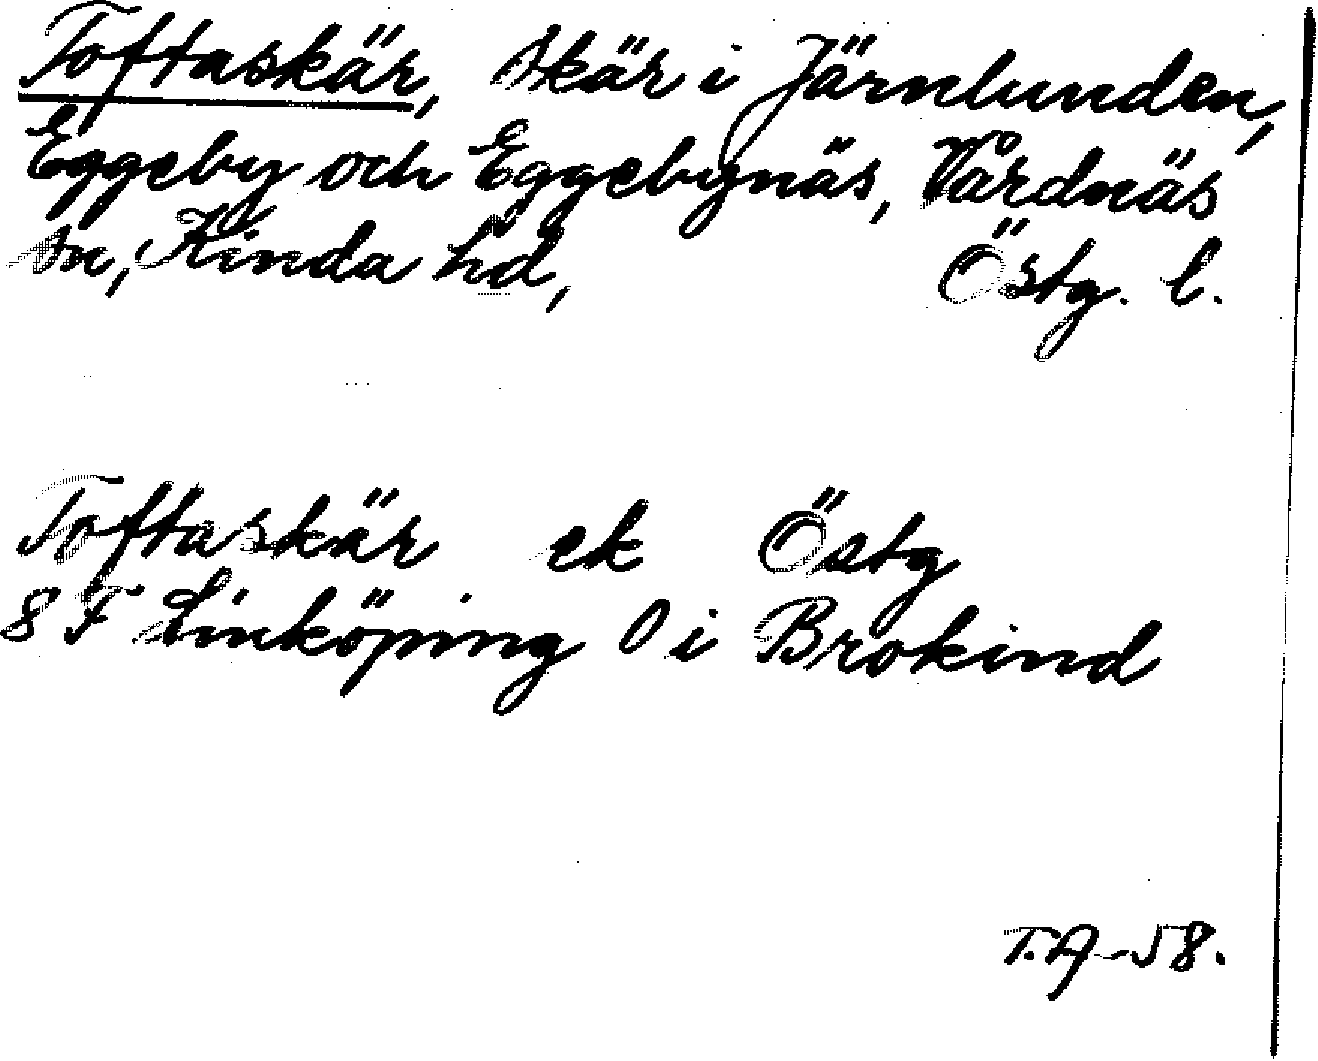 Toftaskär, skär i Järnlunden,
Eggeby och Eggebynäs, Vårdnäs
sn, Kinda hd, Östg. l.
Toftaskär ek Östg
8 F Linköping O i Brokind
T.A-58.